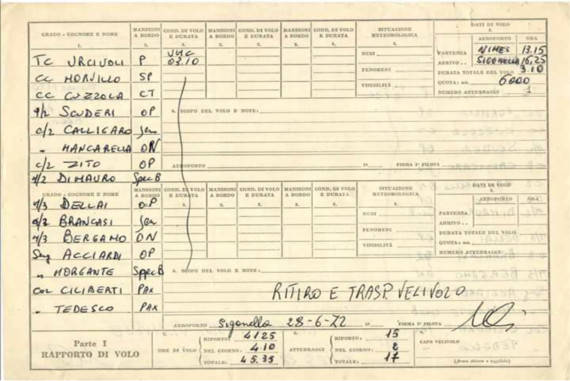 GRADO - COGNOME E NOME
MANSIONI A BORDO
COND. DI VOLO E DURATA
MANSIONI A BORDO
COND. DI VOLO E DURATA
MANSIONI A BORDO
COND. DI VOLO E DURATA
SITUAZIONE METEOROLOGICA
DATI DI VOLO
AEROPORTO
ORA
TC URCIUOLI P
03.10
NUBI
PARTENZA NIMES 13.15
CC MORVILLO SP
ARRIVO SIGONELLA 16.25
CC CUZZOLA CT
FENOMENI
DURATA TOTALE DEL VOLO 3.10
VISIBILITÀ
QUOTA: m. 6000
NUMERO ATTERRAGGI 1
SCUDERI OP
8. SCOPO DEL VOLO E NOTE:
CALLIGARO
" MANCARELLA ON
ZITO OP
AEROPORTO
FIRMA 1° PILOTA
DIMAURO Spec B
GRADO - COGNOME E NOME
MANSIONI A BORDO
COND. DI VOLO E DURATA
MANSIONI A BORDO
COND. DI VOLO E DURATA
MANSIONI A BORDO
COND. DI VOLO E DURATA
SITUAZIONE METEOROLOGICA
DATI DI VOLO
AEROPORTO
ORA
DELLAI OP
NUBI
PARTENZA
BRANCASI
ARRIVO
BERGAMO ON
FENOMENI
DURATA TOTALE DEL VOLO
VISIBILITÀ
QUOTA: m.
NUMERO ATTERRAGGI
ACCIARDI OP
" MORGANTE Spec B
8. SCOPO DEL VOLO E NOTE:
CILIBERTI PAX
RITIRO E TRASP. VELIVOLO
" TEDESCO PAX
AEROPORTO Sigonella 28-6-72 FIRMA 1° PILOTA
Parte I
RAPPORTO DI VOLO
ORE DI VOLO
RIPORTO: 41.25
DEL GIORNO: 4.10
TOTALE: 45.35
ATTERRAGGI
RIPORTO: 15
DEL GIORNO: 2
TOTALE: 17
CAPO VELIVOLO